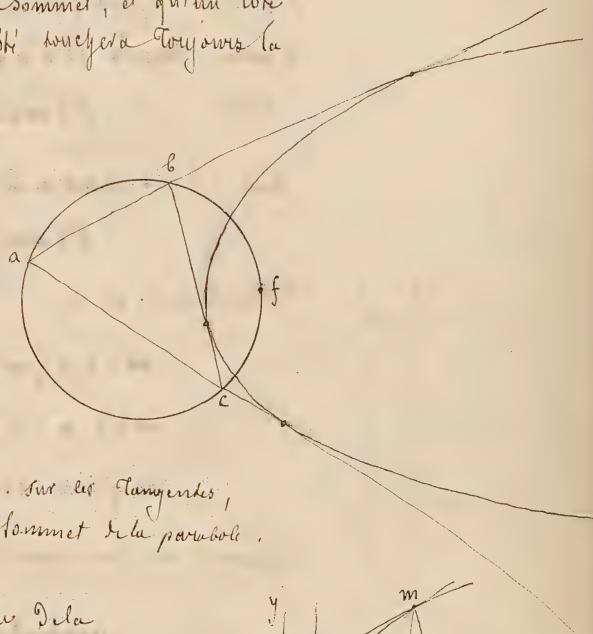 sommet, et qu'un côté
touchera toujours la
b
a
f
c
. sur les tangentes,
sommet de la parabole.
De la
y
m